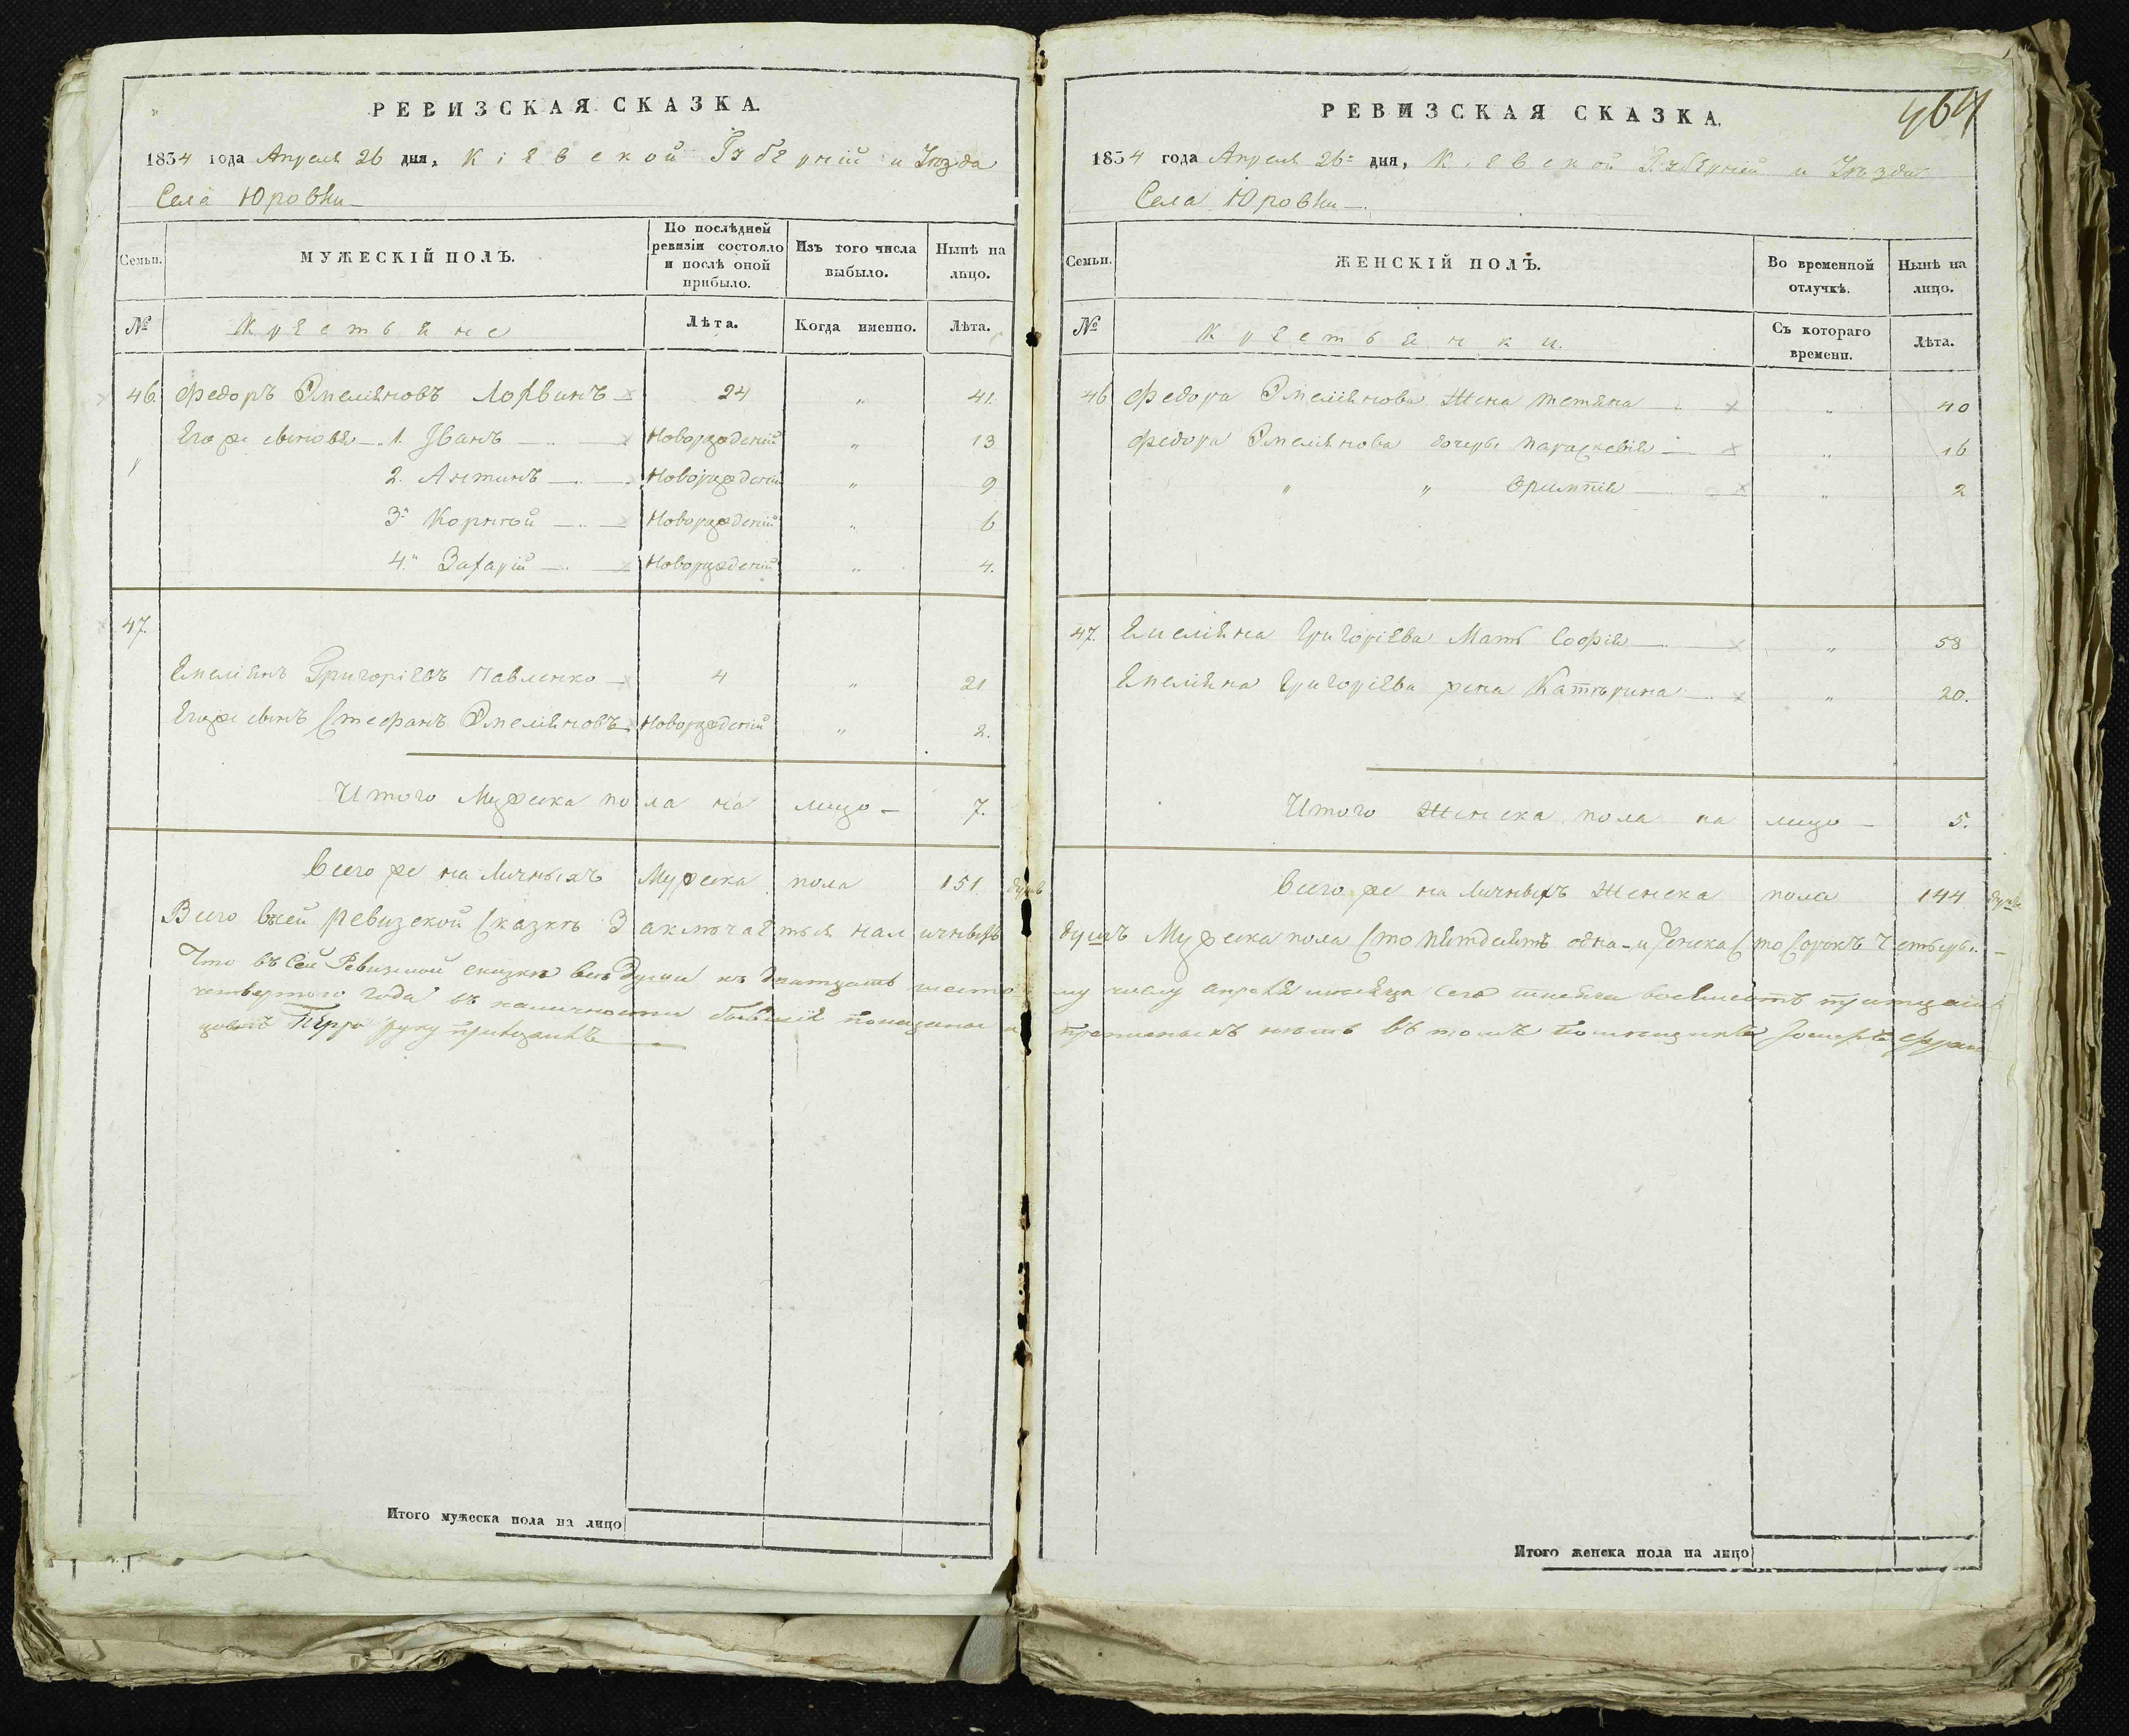 РЕВИЗСКАЯ СКАЗКА.
1834 года Апреля 26 дня, Кіевской Губерніи и Уѣзда
Села Юровки
Семьи.
МУЖЕСКІЙ ПОЛЪ.
По послѣдней ревизіи состояло и послѣ оной прибыло.
Изъ того числа выбыло.
Нынѣ на лицо.
№
Крестьяне
Лѣта.
Когда именно.
Лѣта.
46 Федоръ Омеляновъ 24 " 41.
Его же сыновя 1. Іванъ Новорожденій " 13
2. Антинъ Новорожденій " 9
3" Корній Новорожденій " 6
4." Захарій Новорожденій " 4.
47.
Емелянъ Григоріевъ Павленко 4 " 21
Егоже сынъ Стефанъ Омеляновъ Новорожденій " 2.
Итого Мужеска пола на лицо 7.
Всего же на личныхъ Мужеска пола 151. душъ
Итого мужеска пола на лицо
464
РЕВИЗСКАЯ СКАЗКА.
1834 года Апреля 26 дня, Кіевской Губерніи и Уѣзда
Села Юровки
Семьи.
ЖЕНСКІЙ ПОЛЪ.
Во временной отлучкѣ.
Нынѣ на лицо.
№
Крестьянки.
Съ котораго времени.
Лѣта.
46 Федора Омелянова Жена Тетяна " 40
Федора Омелянова дочеры Параскевія " 16
" " " 2
47. Емеляна Григоріева Мать Софія " 58
Емеляна Григоріева жена Катѣрина " 20.
Итого Женска пола на лицо 5.
Всего же на личныхъ Женска пола 144 душъ
Всего въсей Ревизской Сказкѣ Заключается наличныхъ душъ Мужеска пола Сто пятдесятъ одна и Женска Сто Сорокъ Четыры
Что въ сей Ревизской сказке все Души къ двитцать шестому числу апреля месяца сего тисяча восемсотъ тритцать
четвертого года въ наличности бывшіе показаны и
руку
Итого женска пола на лицо